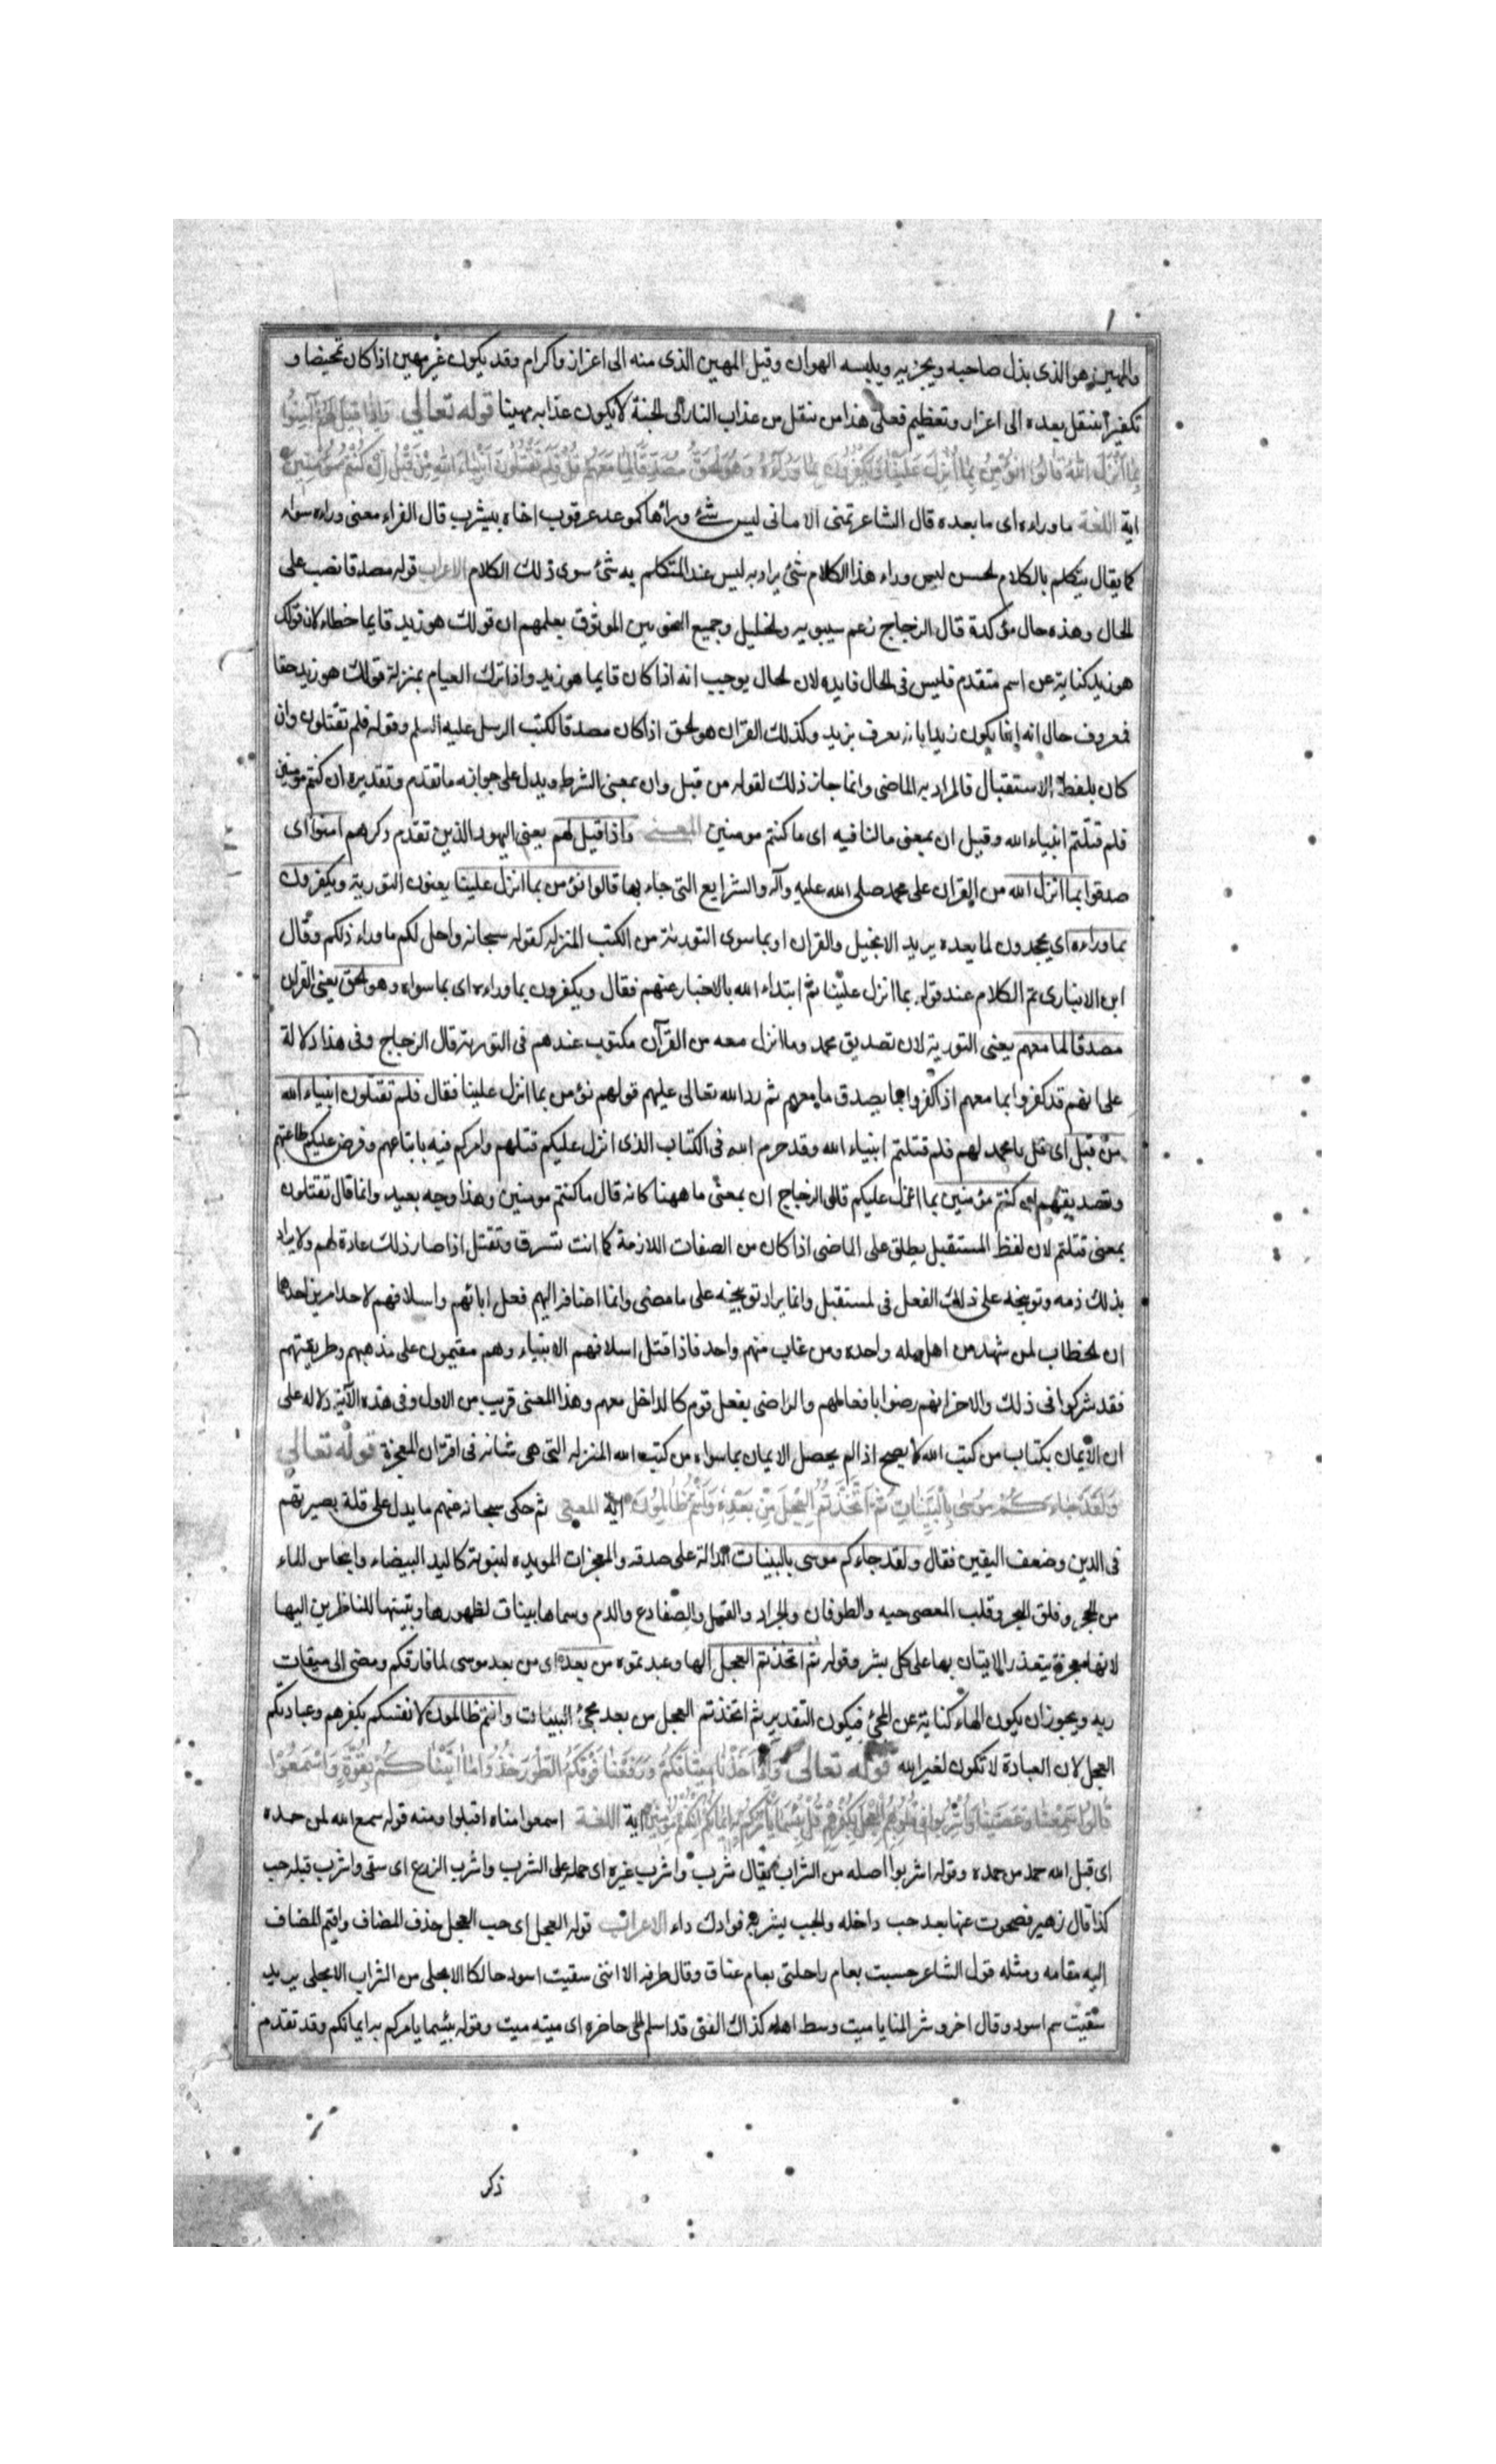 والمهين هو الذى يذل صاحبه ويخزيه ويلبسه الهوان وقيل المهين الذى منه الى اعزاز واكرام وقد يكون غير مهين اذا كان تمحيضا و
تكفيرا ينتقل بعده الى اعزاز وتعظيم فعلى هذا من ينقل من عذاب النار الى الجنة لا يكون عذابه مهينا قوله تعالى واذا قيل لهم آمنوا
بما انزل الله قالوا نؤمن بما انزل علينا ويكفرون بما وراءه وهو الحق مصدقا لما معهم قل فلم تقتلون انبياء الله من قبل ان كنتم مؤمنين
اية اللغة ما وراءه اى ما بعده قال الشاعر تمنى الامانى ليس شئ وراءها كموعد عرقوب اخاه بيثرب قال الفراء معنى وراءه سواه
كما يقال يتكلم بالكلام الحسن ليس وراء هذا الكلام شئ يراد به ليس عند المتكلم به شئ سوى ذلك الكلام الاعراب قوله مصدقا نصب على
الحال وهذه حال مؤكدة قال الزجاج زعم سيبويه والخليل وجميع النحويين الموثوق بعلمهم ان قولك هو زيد قايما خطاء لان قولك
هو زيد كناية عن اسم متقدم فليس فى الحال فايده لان الحال يوجب انه اذا كان قايما هو زيد واذا ترك القيام بمنزلة قولك هو زيد حقا
فمعروف حال انه انما يكون زيدا بانه يعرف بزيد وكذلك القران هو الحق اذا كان مصدقا لكتب الرسل عليه السلم وقوله فلم تقتلون وان
كان بلفظ الاستقبال فالمراد به الماضى وانما جاز ذلك لقوله من قبل وان بمعنى الشرط ويدل على جوابه ما تقدم وتقديره ان كنتم مؤمنين
فلم قتلتم انبياء الله وقيل ان بمعنى ما النافيه اى ما كنتم مومنين المعنى واذا قيل لهم يعنى اليهود الذين تقدم ذكرهم امنوا اى
صدقوا بما انزل الله من القران على محمد صلى الله عليه وآله والشرايع التى جاء بها قالوا نؤمن بما انزل علينا يعنون التورية ويكفرون
بما وراءه اى يجحدون لما بعده يريد الانجيل والقران او بما سوى التورية من الكتب المنزله كقوله سبحانه واحل لكم ما وراء ذلكم وقال
ابن الانبارى تم الكلام عند قوله بما انزل علينا ثم ابتداء الله بالاخبار عنهم فقال ويكفرون بما وراءه اى بما سواه وهو الحق يعنى القران
مصدقا لما معهم يعنى التورية لان تصديق محمد وما انزل معه من القرآن مكتوب عندهم فى التورية قال الزجاج وفى هذا دلالة
على انهم قد كفروا بما معهم اذ كفروا بما يصدق ما معهم ثم رد الله تعالى عليهم قولهم نؤمن بما انزل علينا فقال فلم تقتلون انبياء الله
من قبل اى قل يا محمد لهم فلم قتلتم انبياء الله وقد حرم الله فى الكتاب الذى انزل عليكم قتلهم وامركم فيه باتباعهم وفرض عليكم طاعتهم
وتصديقهم ان كنتم مؤمنين بما انزل عليكم قال الزجاج ان بمعنى ما ههنا كانه قال ما كنتم مومنين وهذا وجه بعيد وانما قال تقتلون
بمعنى قتلتم لان لفظ المستقبل يطلق على الماضى اذا كان من الصفات اللازمة كما انت تسرق وتقتل اذا صار ذلك عادة لهم ولا يراد
بذلك ذمه وتوبيخه على ذلك الفعل فى المستقبل وانما يراد توبيخه على ما مضى وانما اضاف اليهم فعل ابائهم واسلافهم لاحد امرين احدهما
ان الخطاب لمن شهد من اهل مله واحده ومن غاب منهم واحد فاذا قتل اسلافهم الانبياء وهم مقيمون على مذهبهم وطريقتهم
فقد شركوا فى ذلك والاخر انهم رضوا بافعالهم والراضى بفعل قوم كالداخل معهم وهذا المعنى قريب من الاول وفى هذه الآية دلاله على
ان الايمان بكتاب من كتب الله لا يصح اذا لم يحصل الايمان بما سواه من كتب الله المنزله التى هى مثله فى اقتران المعجزة قوله تعالى
ولقد جاءكم موسى بالبينات ثم اتخذتم العجل من بعده وانتم ظالمون اية المعنى ثم حكى سبحانه عنهم ما يدل على قلة بصيرتهم
فى الدين وضعف اليقين فقال ولقد جاءكم موسى بالبينات الدالة على صدقه والمعجزات المويده لنبوته كاليد البيضاء وانبجاس الماء
من الحجر وفلق البحر وقلب العصى حيه والطوفان والجراد والقمل والضفادع والدم وسماها بينات لظهورها وتبينها للناظرين اليها
لانها معجزة يتعذر الاتيان بها على كل بشر وقوله ثم اتخذتم العجل الها وعبدتموه من بعده اى من بعد موسى لما فارقكم ومضى الى ميقات
ربه ويجوز ان يكون الهاء كناية عن المجئ فيكون التقدير ثم اتخذتم العجل من بعد مجئ البينات وانتم ظالمون لانفسكم بكفرهم وعبادتكم
العجل لان العبادة لا تكون لغير الله قوله تعالى واذ اخذنا ميثاقكم ورفعنا فوقكم الطور خذوا ما اتيناكم بقوة واسمعوا
قالوا سمعنا وعصينا واشربوا فى قلوبهم العجل بكفرهم قل بئسما يأمركم به ايمانكم ان كنتم مؤمنين اية اللغة اسمعوا معناه اقبلوا ومنه قوله سمع الله لمن حمده
اى قبل الله حمد من حمده وقوله اشربوا اصله من الشراب يقال شرب واشرب غيره اى حمله على الشرب واشرب الزرع اى سقى واشرب قبله حب
كذا قال زهير فصحوت عنها بعد حب داخله والحب يشربه فوادك داء الاعراب قوله العجل اى حب العجل حذف المضاف واقيم المضاف
اليه مقامه ومثله قول الشاعر حسبت بغام راحلتى بغام عناق وقال طرفه الا اننى سقيت اسود حالكا الا بجلى من الشراب الا بجلى يريد
سقيت سم اسود وقال اخر وشر المنايا ميت وسط اهله كذاك الفتى قد اسلم الحى حاضره اى ميته ميت وقوله بئسما يامركم به ايمانكم وقد تقدم
ذكر